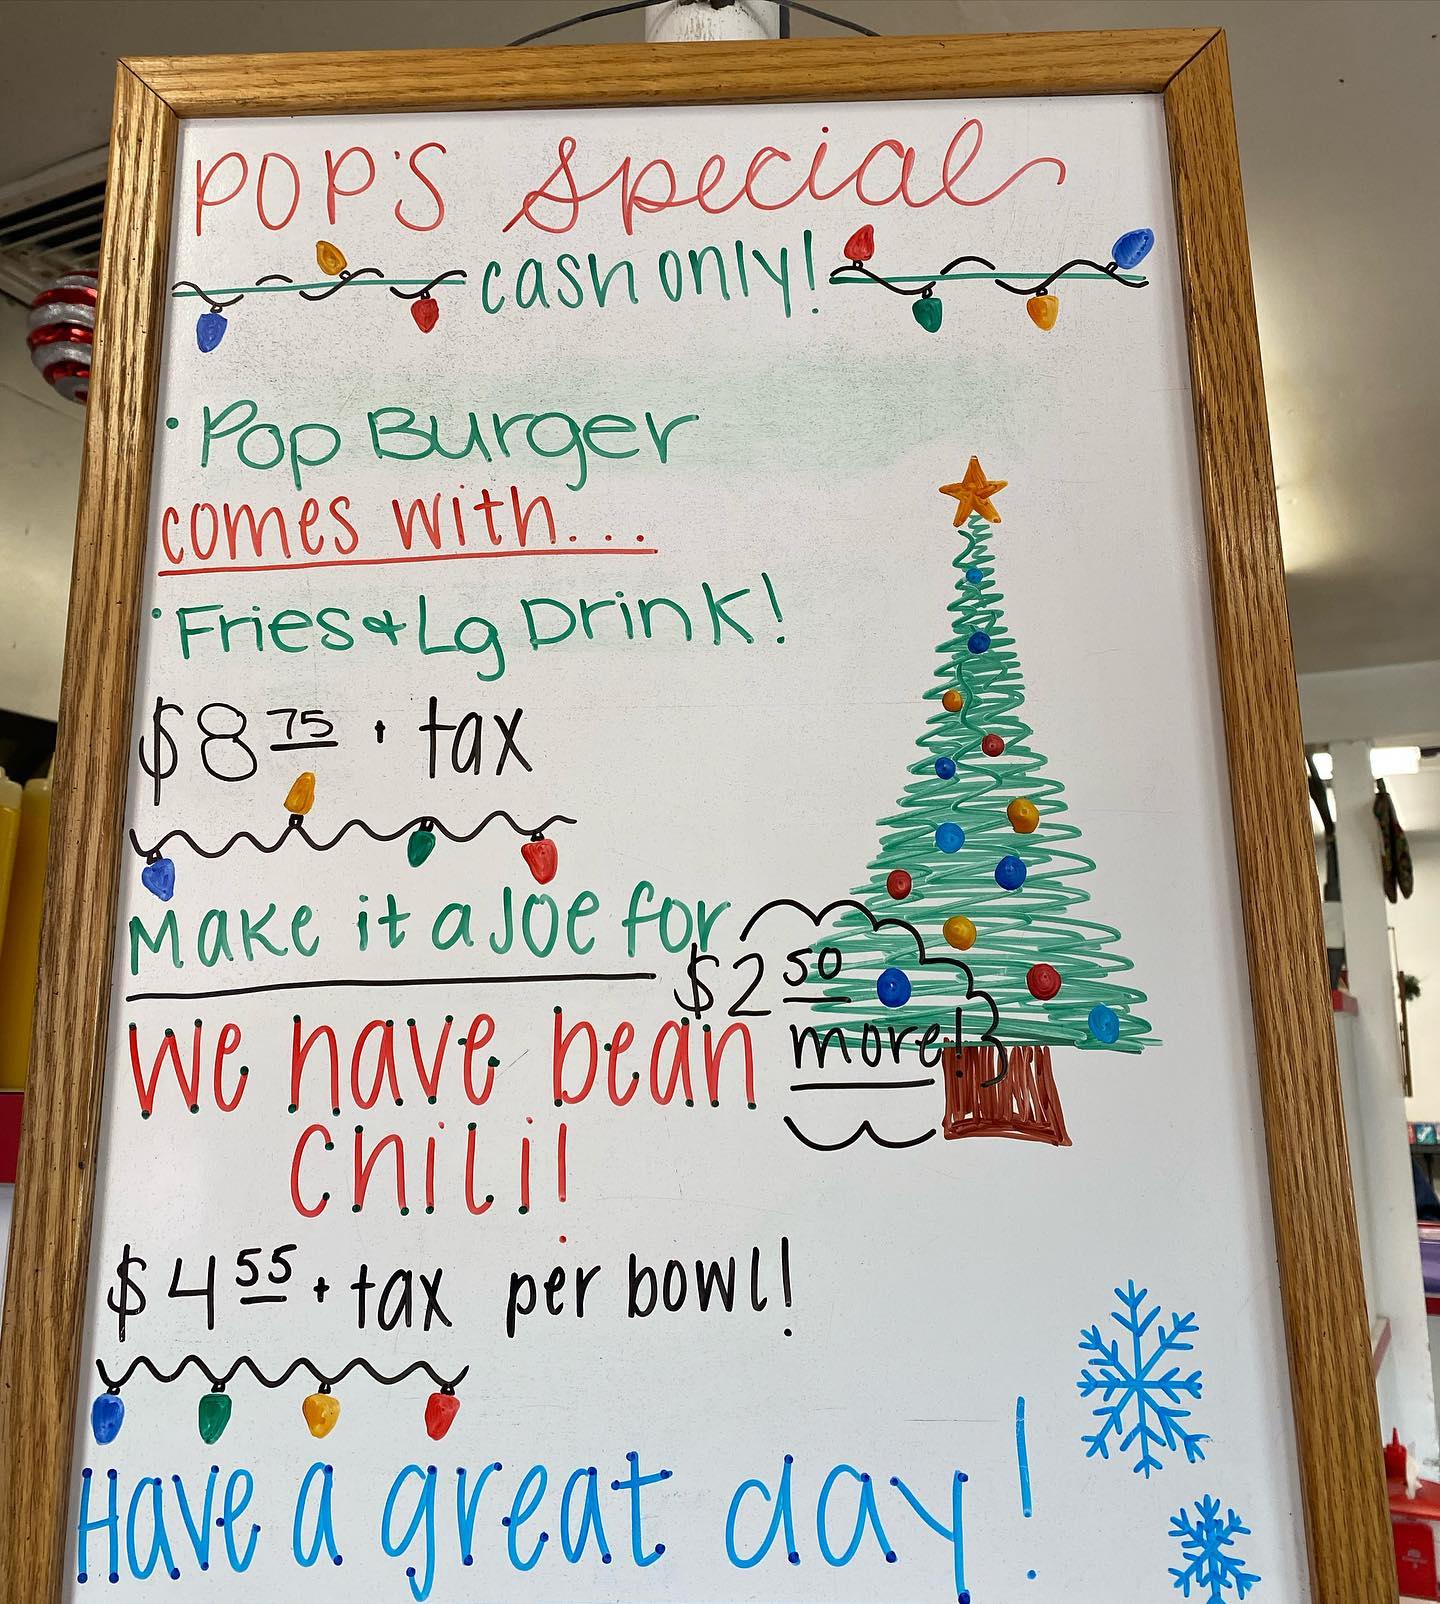 POP'S Special
cash only!
• Pop Burger
comes with...
• Fries & Lg Drink!
$8 75 + tax
Make it a JOE for
$2 50
more!
We have bean
chili!
$4 55 + tax per bowl!
Have a great day!